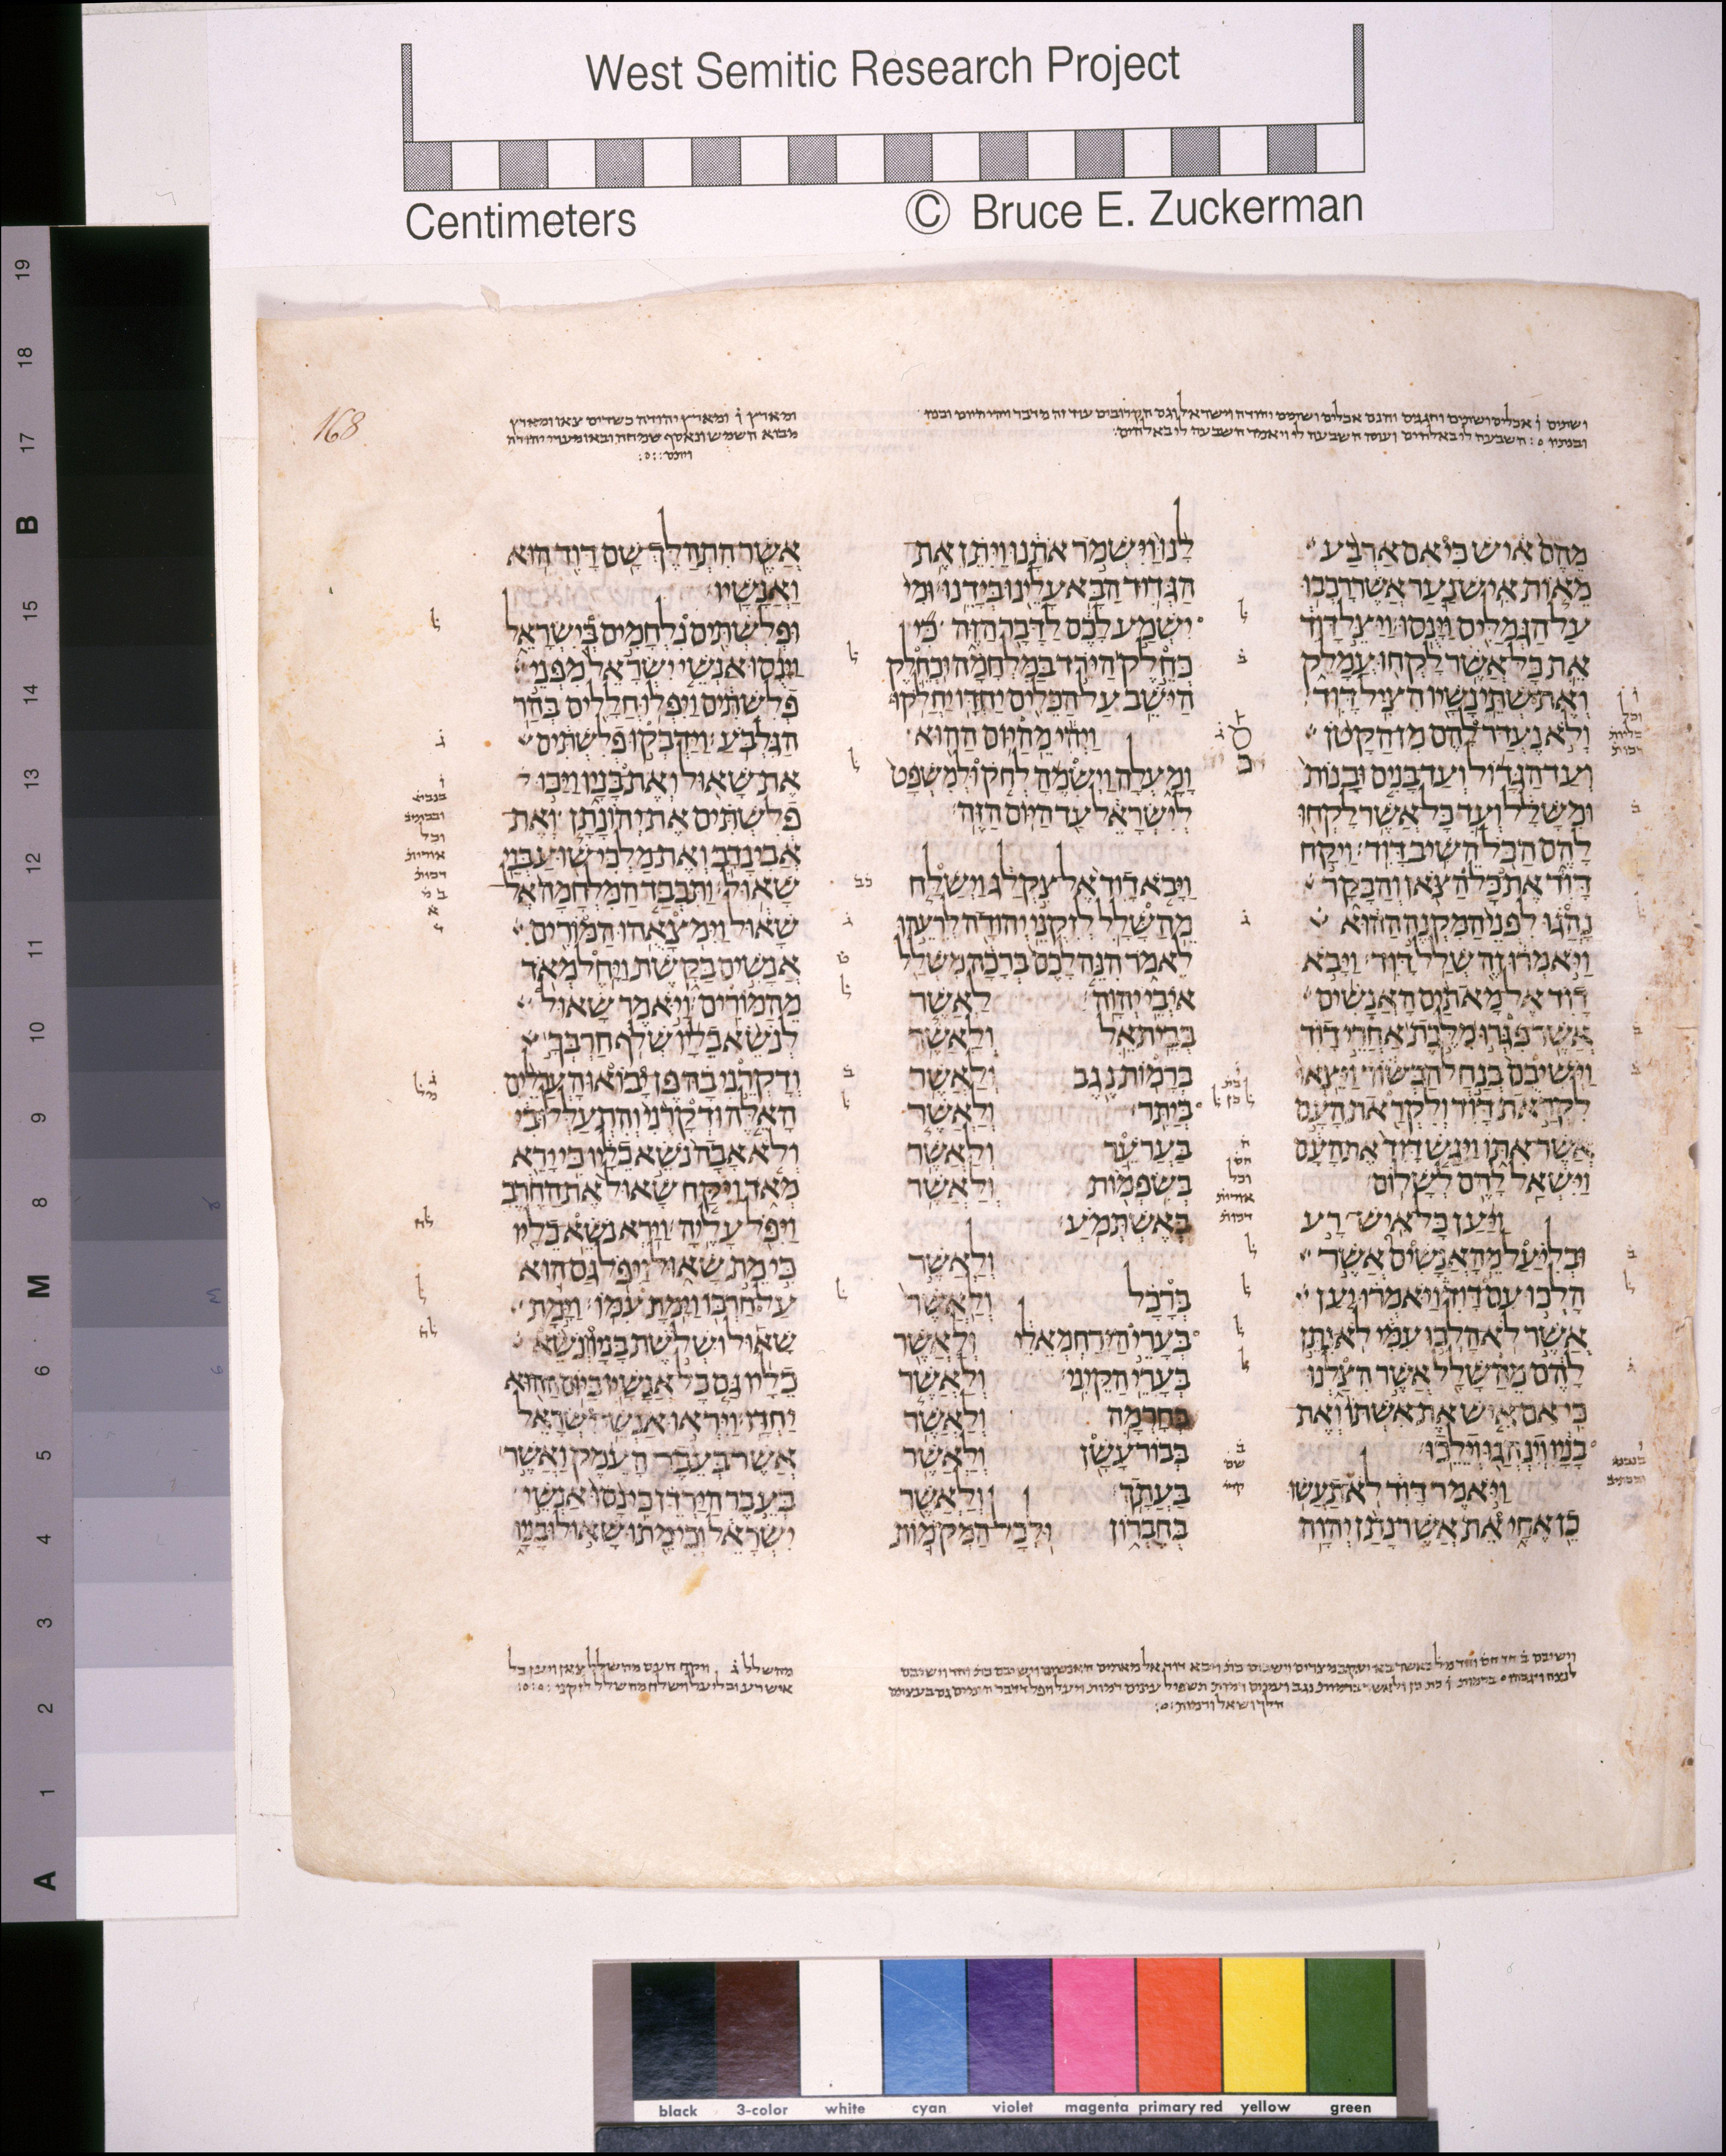 West Semitic Research Project
Centimeters
© Bruce E. Zuckerman
168
מהם איש כי אם ארבע
מאות איש נער אשר רכבו
על הגמלים וינסו ויצל דוד
את כל אשר לקחו עמלק
ואת שתי נשיו הציל דוד
ולא נעדר להם מן הקטן
ועד הגדול ועד בנים ובנות
ומשלל ועד כל אשר לקחו
להם הכל השיב דוד ויקח
דוד את כל הצאן והבקר
נהגו לפני המקנה ההוא
ויאמרו זה שלל דוד ויבא
דוד אל מאתים האנשים
אשר פגרו מלכת אחרי דוד
וישיבם בנחל הבשור ויצאו
לקראת דוד ולקראת העם
אשר אתו ויגש דוד את העם
וישאל להם לשלום
ויען כל איש רע
ובליעל מהאנשים אשר
הלכו עם דוד ויאמרו יען
אשר לא הלכו עמי לא נתן
להם מהשלל אשר הצלנו
כי אם איש את אשתו ואת
בניו וינהגו וילכו
ויאמר דוד לא תעשו
כן אחי את אשר נתן יהוה
לנו וישמר אתנו ויתן את
הגדוד הבא עלינו בידנו ומי
ישמע לכם לדבר הזה כי
כחלק הירד במלחמה וכחלק
הישב על הכלים יחדו יחלקו
ויהי מהיום ההוא
ומעלה וישמה לחק ולמשפט
לישראל עד היום הזה
ויבא דוד אל צקלג וישלח
מהשלל לזקני יהודה לרעהו
לאמר הנה לכם ברכה משלל
איבי יהוה לאשר
בבית אל ולאשר
ברמות נגב ולאשר
ביתר ולאשר
בערער ולאשר
בשפמות ולאשר
באשתמע
ולאשר
ברכל ולאשר
בערי הירחמאלי ולאשר
בערי הקיני ולאשר
בחרמה ולאשר
בבור עשן ולאשר
בעתך ולאשר
בחברון ולכל המקמות
אשר התהלך שם דוד הוא
ואנשיו
ופלשתים נלחמים בישראל
וינסו אנשי ישראל מפני
פלשתים ויפלו חללים בהר
הגלבע וידבקו פלשתים
את שאול ואת בניו ויכו
פלשתים את יהונתן ואת
אבינדב ואת מלכי שוע בני
שאול ותכבד המלחמה אל
שאול וימצאהו המורים
אנשים בקשת ויחל מאד
מהמורים ויאמר שאול
לנשא כליו שלף חרבך
ודקרני בה פן יבואו הערלים
האלה ודקרני והתעללו בי
ולא אבה נשא כליו כי ירא
מאד ויקח שאול את החרב
ויפל עליה וירא נשא כליו
כי מת שאול ויפל גם הוא
על חרבו וימת עמו וימת
שאול ושלשת בניו ונשא
כליו גם כל אנשיו ביום ההוא
יחדו ויראו אנשי ישראל
אשר בעבר העמק ואשר
בעבר הירדן כי נסו אנשי
ישראל וכי מתו שאול ובניו
black 3-color white cyan violet magenta primary red yellow green
19
18
17
B
15
14
13
12
11
10
9
8
M
6
5
4
3
2
1
A